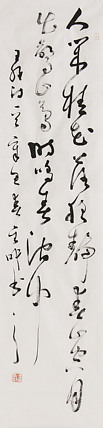 人閒桂花落夜靜春山空月
出驚山鳥時鳴春澗中
王維詩一首